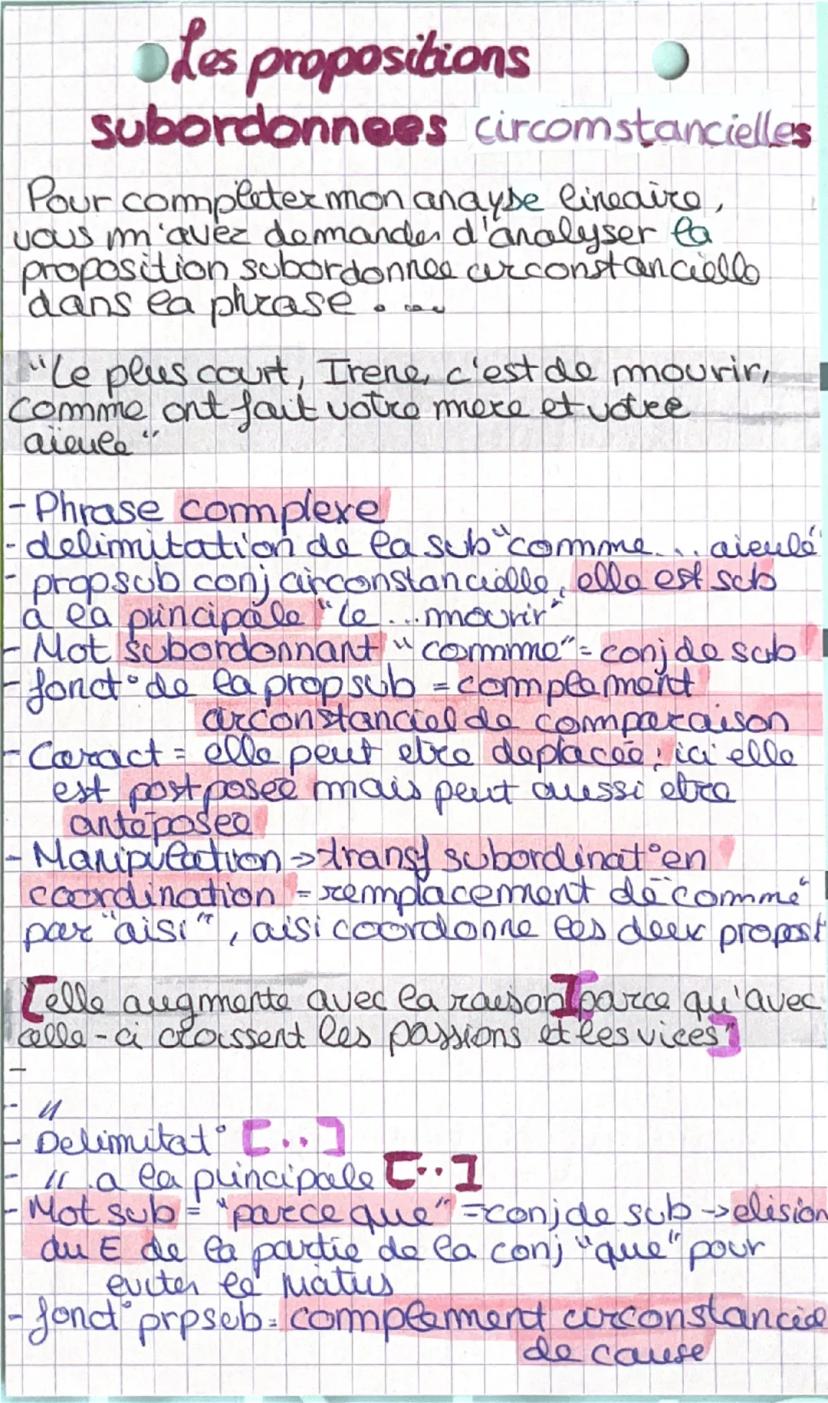 Les propositions
subordonnees circomstancielles
Pour completer mon anayse lineaire,
vous m'avez demander d'analyser la
proposition subordonnee circonstancielle
dans la phrase . ...
"Le plus court, Irene, c'est de mourir,
comme ont fait votre mere et votre
aieule"
- Phrase complexe
- delimitation de la sub "comme... aieule"
- prop sub conj circonstancielle, elle est sub
a la principale "le ... mourir"
- Mot subordonnant "comme" = conj de sub
- fonct° de la prop sub = complement
circonstanciel de comparaison
- Caract = elle peut etre deplacée; ici elle
est postposee mais peut aussi etre
antéposee
- Manipulation -> transf subordinat° en
coordination = remplacement de "comme"
par "aisi", aisi coordonne les deux propost
[elle augmente avec la raison][parce qu'avec
celle-ci croissent les passions et les vices"]
-
- "
- Delimitat° [..]
- " a la principale [..]
- Mot sub = "parce que" = conj de sub -> elision
du E de la partie de la conj "que" pour
eviter le hiatus
- fonct° prpsub = complement circonstanciel
de cause